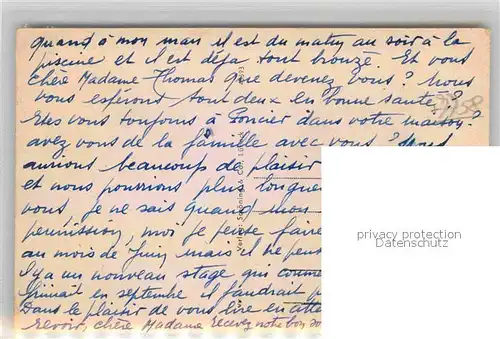 quand à mon mari il est du matin au soir à la
piscine et il est déjà tout bronzé. Et vous
chère Madame Thomas que devenez vous? Nous
vous espérons tout deux en bonne santé?
Etes vous toujours à Poncier dans votre maison?
avez vous de la famille avec vous? nous
aurions beaucoup de plaisir
et nous pourrions plus longue
vous je ne sais quand mon
permission, moi je pense faire
au mois de Juin mais il ne peut
Il y a un nouveau stage qui comme
en septembre il faudrait
Dans le plaisir de vous lire en atte
revoir, chère Madame recevez notre bon so
privacy protection
Datenschutz